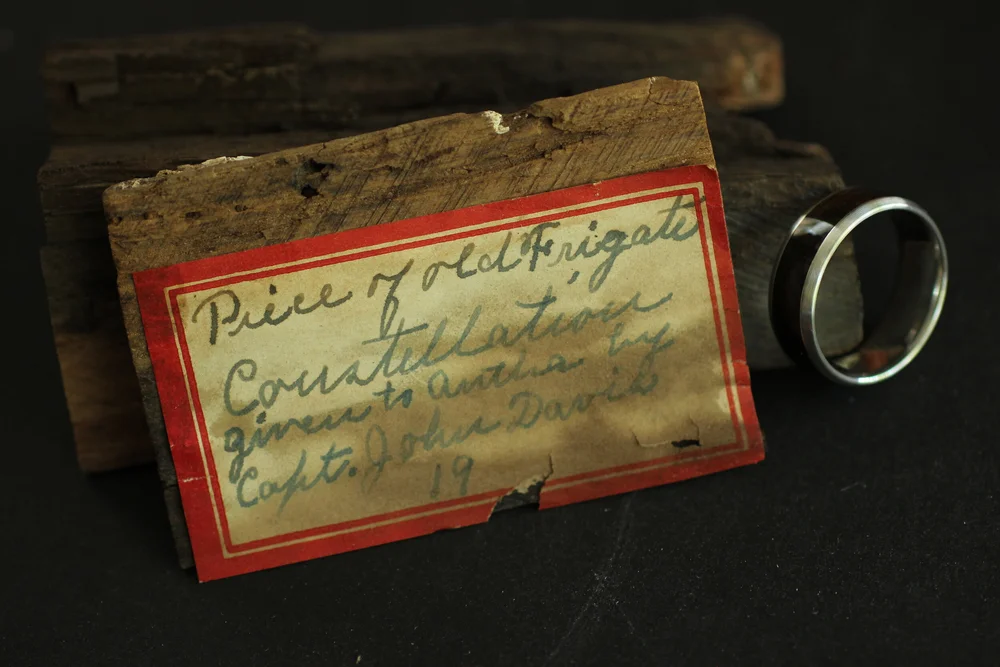 Piece of old Frigate
Constellation
given to Aretha by
Capt. John Davis
19